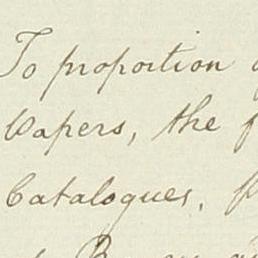 To proportion
Papers, the
Catalogues,